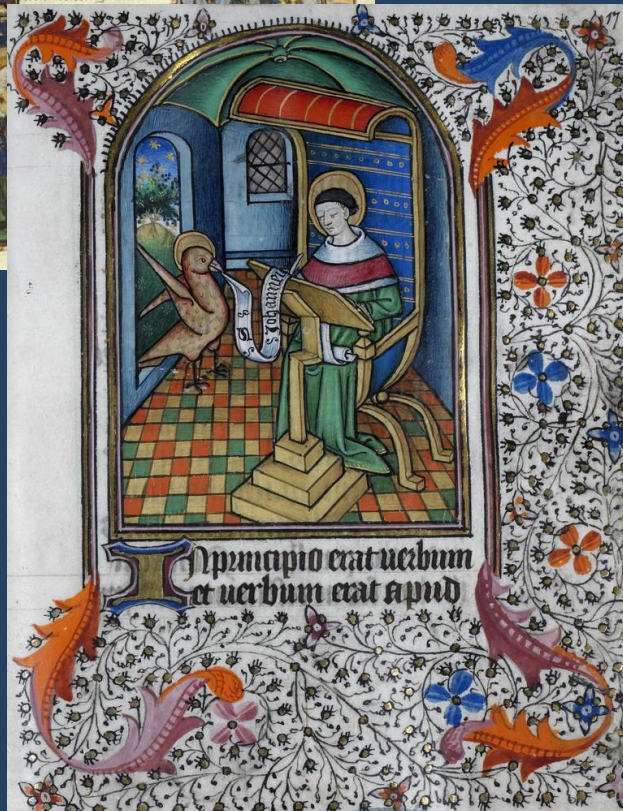 S Iohannes
In principio erat uerbum
et uerbum erat apud